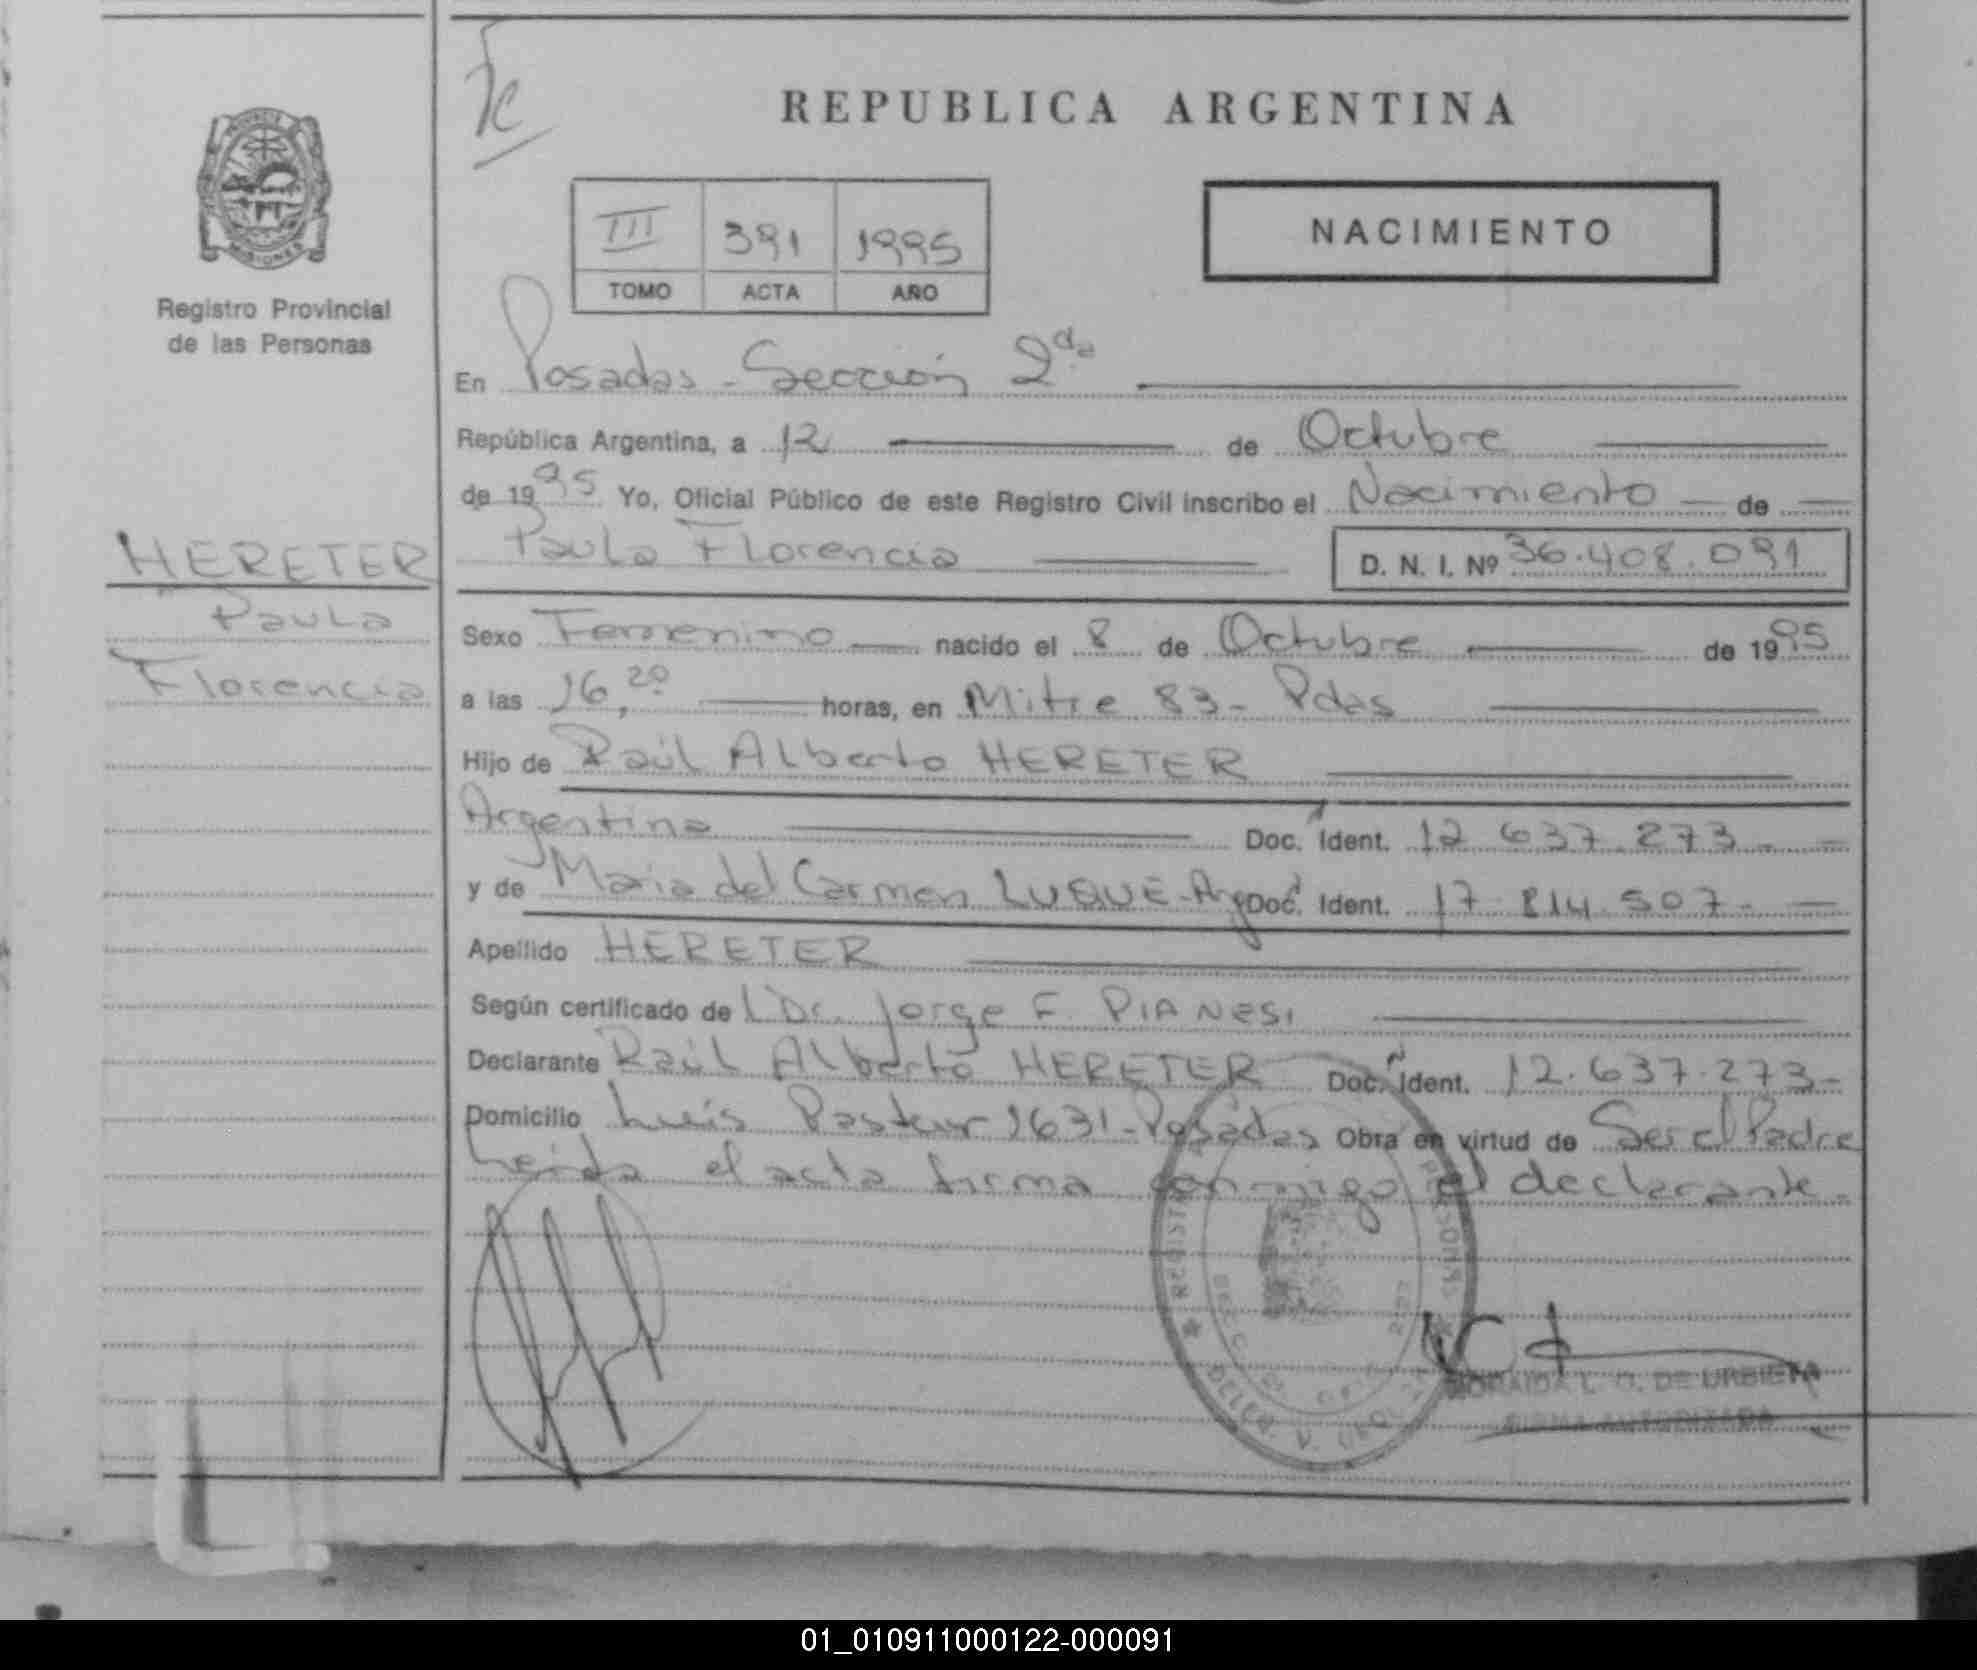 REPUBLICA ARGENTINA
NACIMIENTO
III 391 1995
TOMO ACTA AÑO
MISIONES
Registro Provincial
de las Personas
HERETER
Paula
Florencia
En Posadas - Sección 2da
República Argentina, a 12 de Octubre
de 1995 Yo, Oficial Público de este Registro Civil inscribo el Nacimiento de
Paula Florencia D. N. I. Nº 36.408.091
Sexo Femenino nacido el 8 de Octubre de 1995
a las 16,20 horas, en Mitre 83 - Pdas
Hijo de Raúl Alberto HERETER
Argentina Doc. Ident. 12.637.273 -
y de Maria del Carmen LUQUE - Arg Doc. Ident. 17.814.507 -
Apellido HERETER
Según certificado de l Dr. Jorge F. PIANESI
Declarante Raúl Alberto HERETER Doc. Ident. 12.637.273 -
Domicilio Luis Pasteur 1631 - Posadas Obra en virtud de Ser el Padre
Leida el acta firma conmigo el declarante -
L. O. DE URBIETA
FIRMA AUTORIZADA
01_010911000122-000091